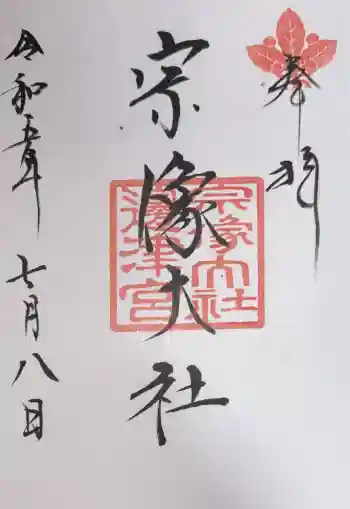 奉拝
宗像大社
宗像大社
邊津宮
令和五年 七月八日